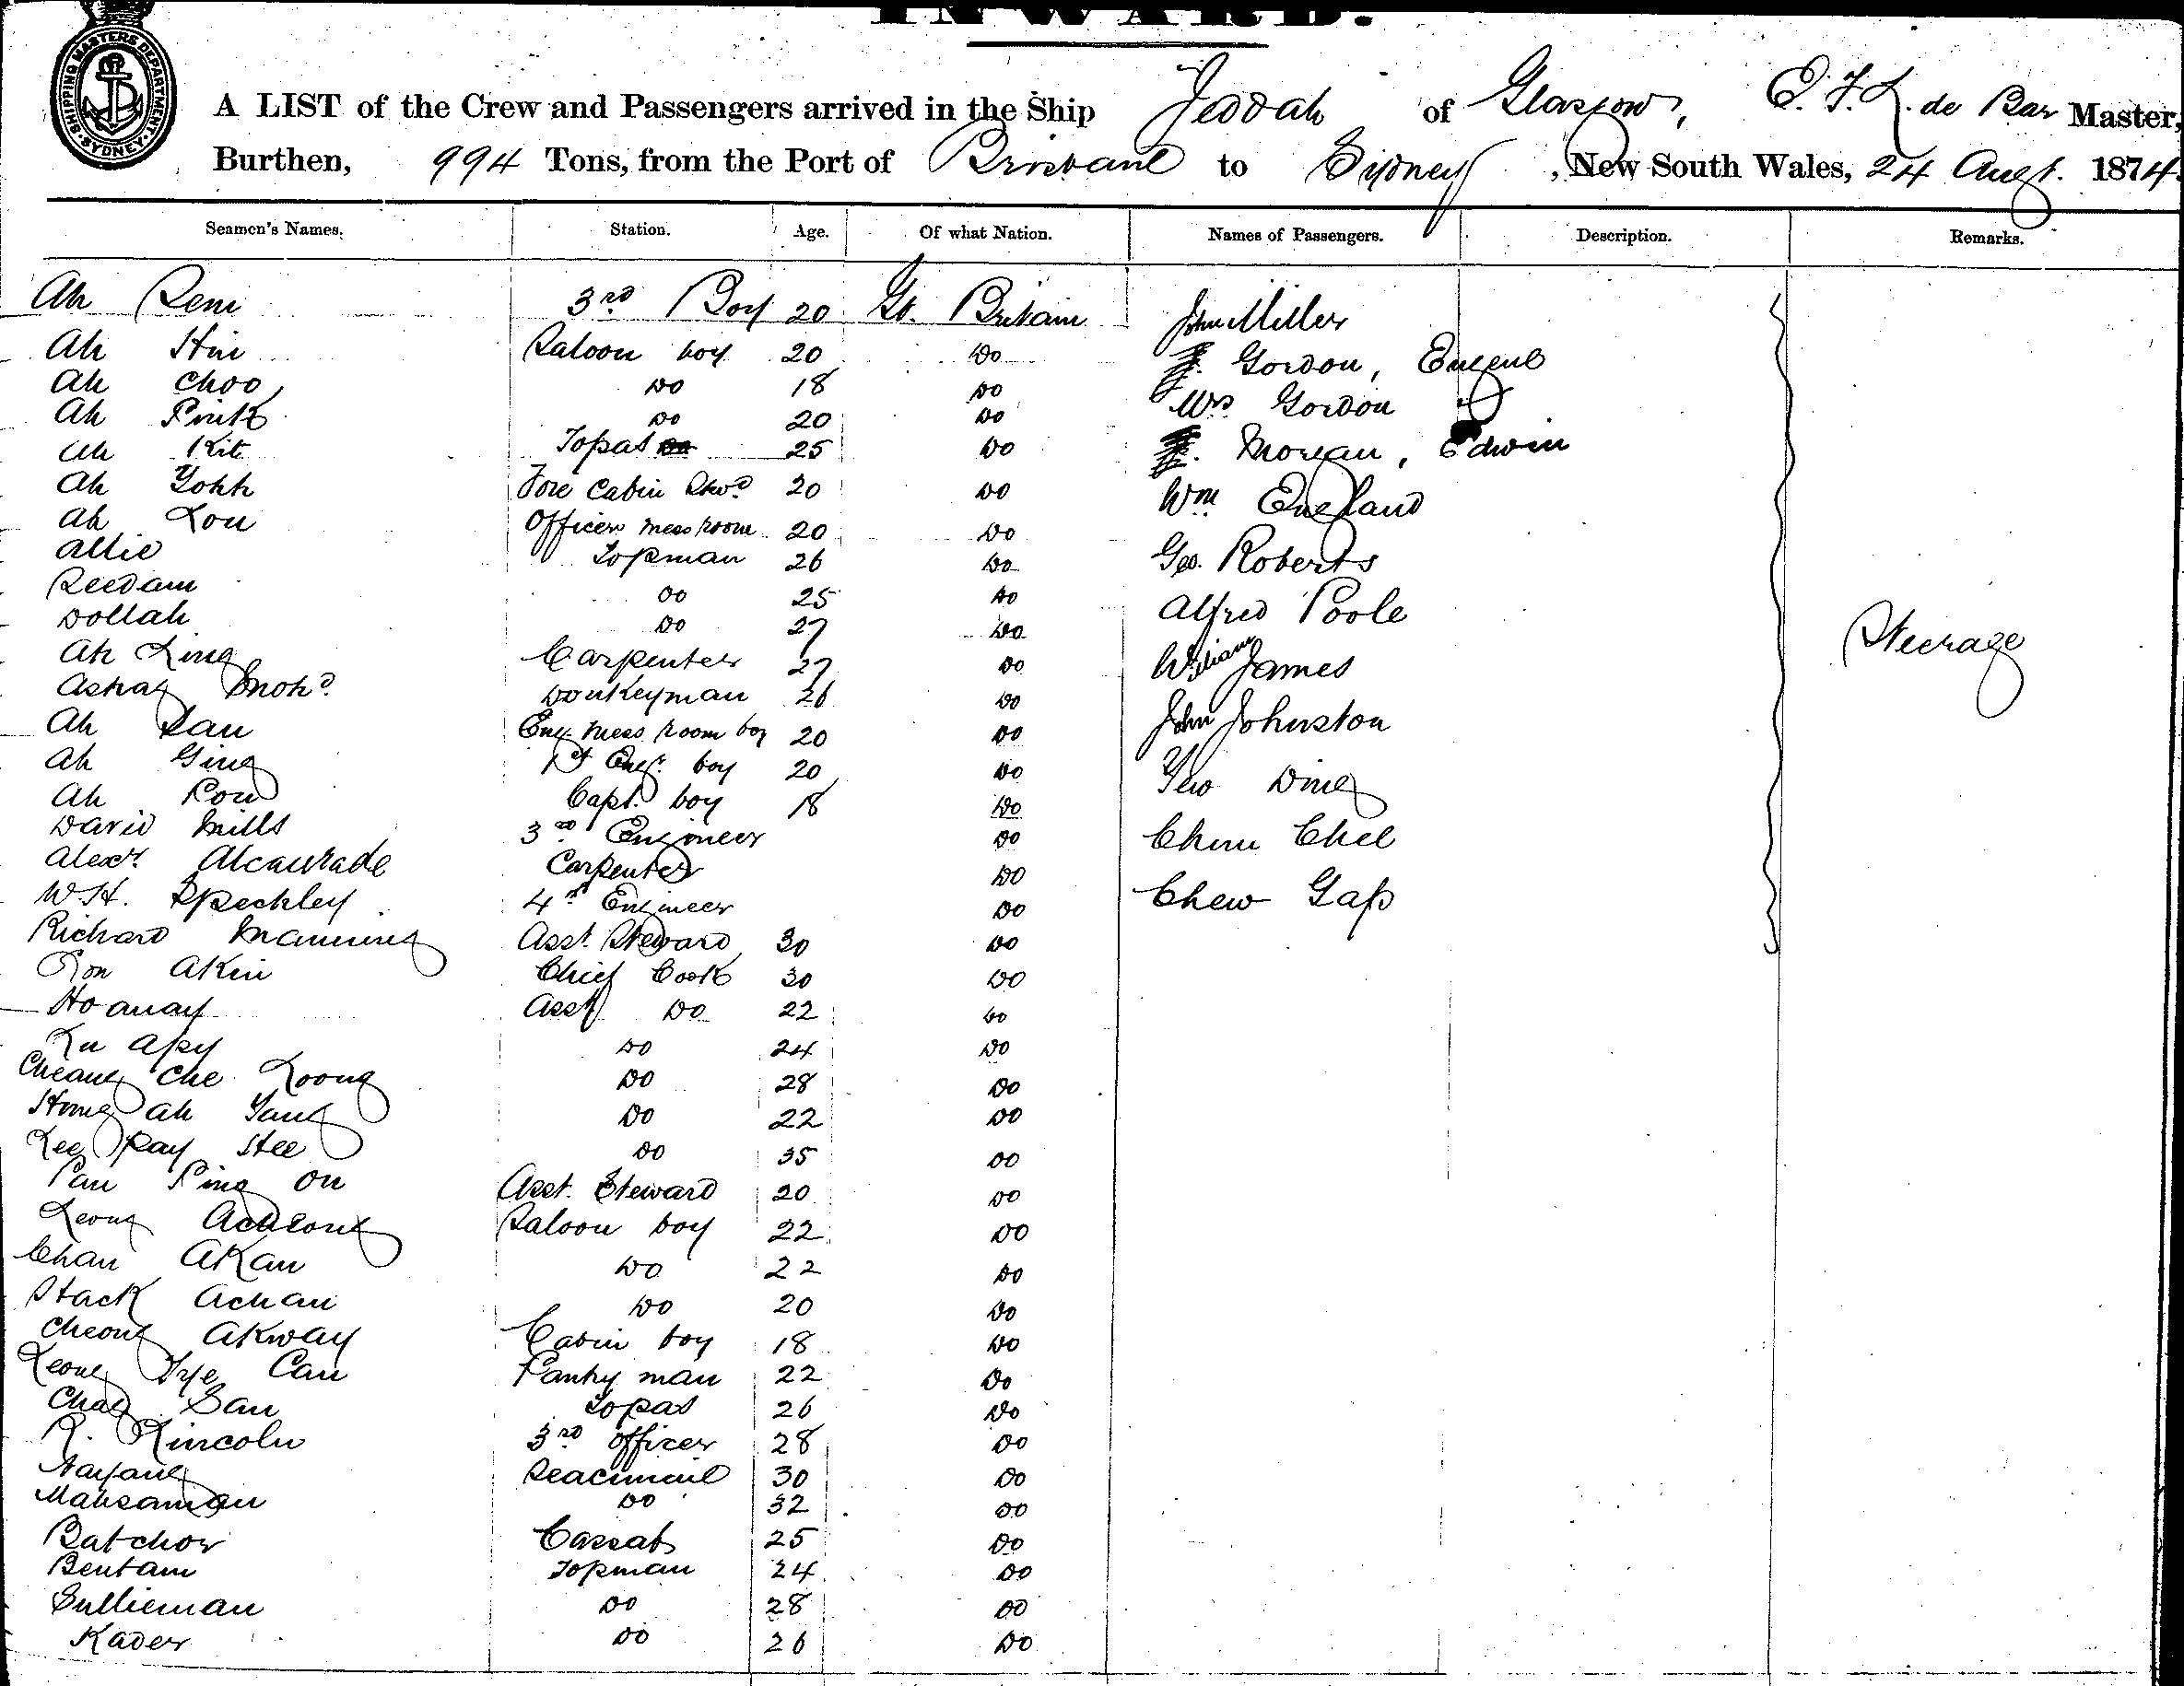 INWARD.
SHIPPING MASTERS DEPARTMENT. SYDNEY.
A LIST of the Crew and Passengers arrived in the Ship Jeddah of Glasgow, Master,
Burthen, 994 Tons, from the Port of Brisbane to Sydney, New South Wales, 24 Augt. 1874.
Seamen's Names. Station. Age. Of what Nation. Names of Passengers. Description. Remarks.
Ah 3rd Boy 20 Gt. Britain John Miller
Ah Hin Saloon boy 20 Do Gordon, Eugene
Ah Choo Do 18 Do Mrs Gordon
Ah Do 20 Do
Ah Kit Topas 25 Do Morgan, Edwin
Ah Fore Cabin Stwd 20 Do Wm England
Ah Lou Officers mess room 20 Do
Allie Topman 26 Do Geo. Roberts
Reedam Do 25 Do Alfred Poole
Dollah Do 27 Do
Ah Ling Carpenter 27 Do William James Steerage
Mohd. Donkeyman 26 Do
Ah San Eng. mess room boy 20 Do John Johnston
Ah Ging 1st Engr. boy 20 Do
Ah Capt. boy 18 Do
David Mills 3rd Engineer Do
Alexr. Carpenter Do
W. H. Speckley 4th Engineer Do Chew
Richard Manning Asst. Steward 30 Do
Akin Chief Cook 30 Do
Asst Do 22 Do
Do 24 Do
Cheang Che Loong Do 28 Do
Hong Ah Yang Do 22 Do
Lee Do 35 Do
Ping On Asst. Steward 20 Do
Leong Saloon boy 22 Do
Chan Akan Do 22 Do
Do 20 Do
Cheong Akway Cabin boy 18 Do
Leong Pantry man 22 Do
San Topas 26 Do
R. Lincoln 3rd Officer 28 Do
30 Do
Do 32 Do
Batchor Cassab 25 Do
Bentam Topman 24 Do
Sullieman Do 28 Do
Kader Do 26 Do